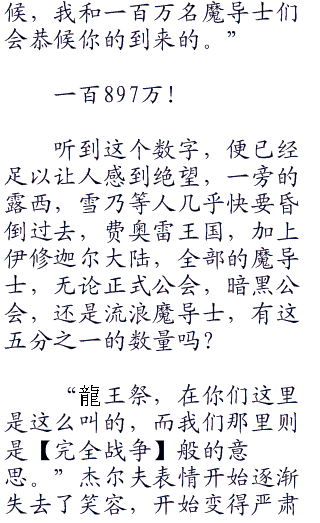 候，我和一百万名魔导士们
会恭候你的到来的。”
一百897万！
听到这个数字，便已经
足以让人感到绝望，一旁的
露西，雪乃等人几乎快要昏
倒过去，费奥雷王国，加上
伊修迦尔大陆，全部的魔导
士，无论正式公会，暗黑公
会，还是流浪魔导士，有这
五分之一的数量吗？
“龍王祭，在你们这里
是这么叫的，而我们那里则
是【完全战争】般的意
思。”杰尔夫表情开始逐渐
失去了笑容，开始变得严肃